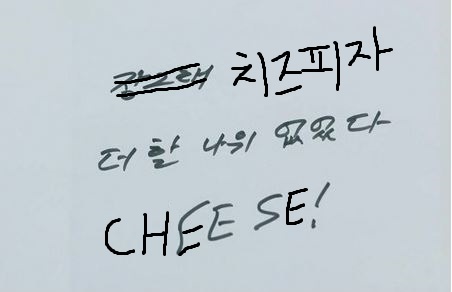 장그래 치즈피자
더 할 나위 없었다
CHEESE!